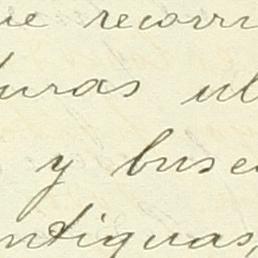 ue recorri
turas ul
y busca
ntiguas,